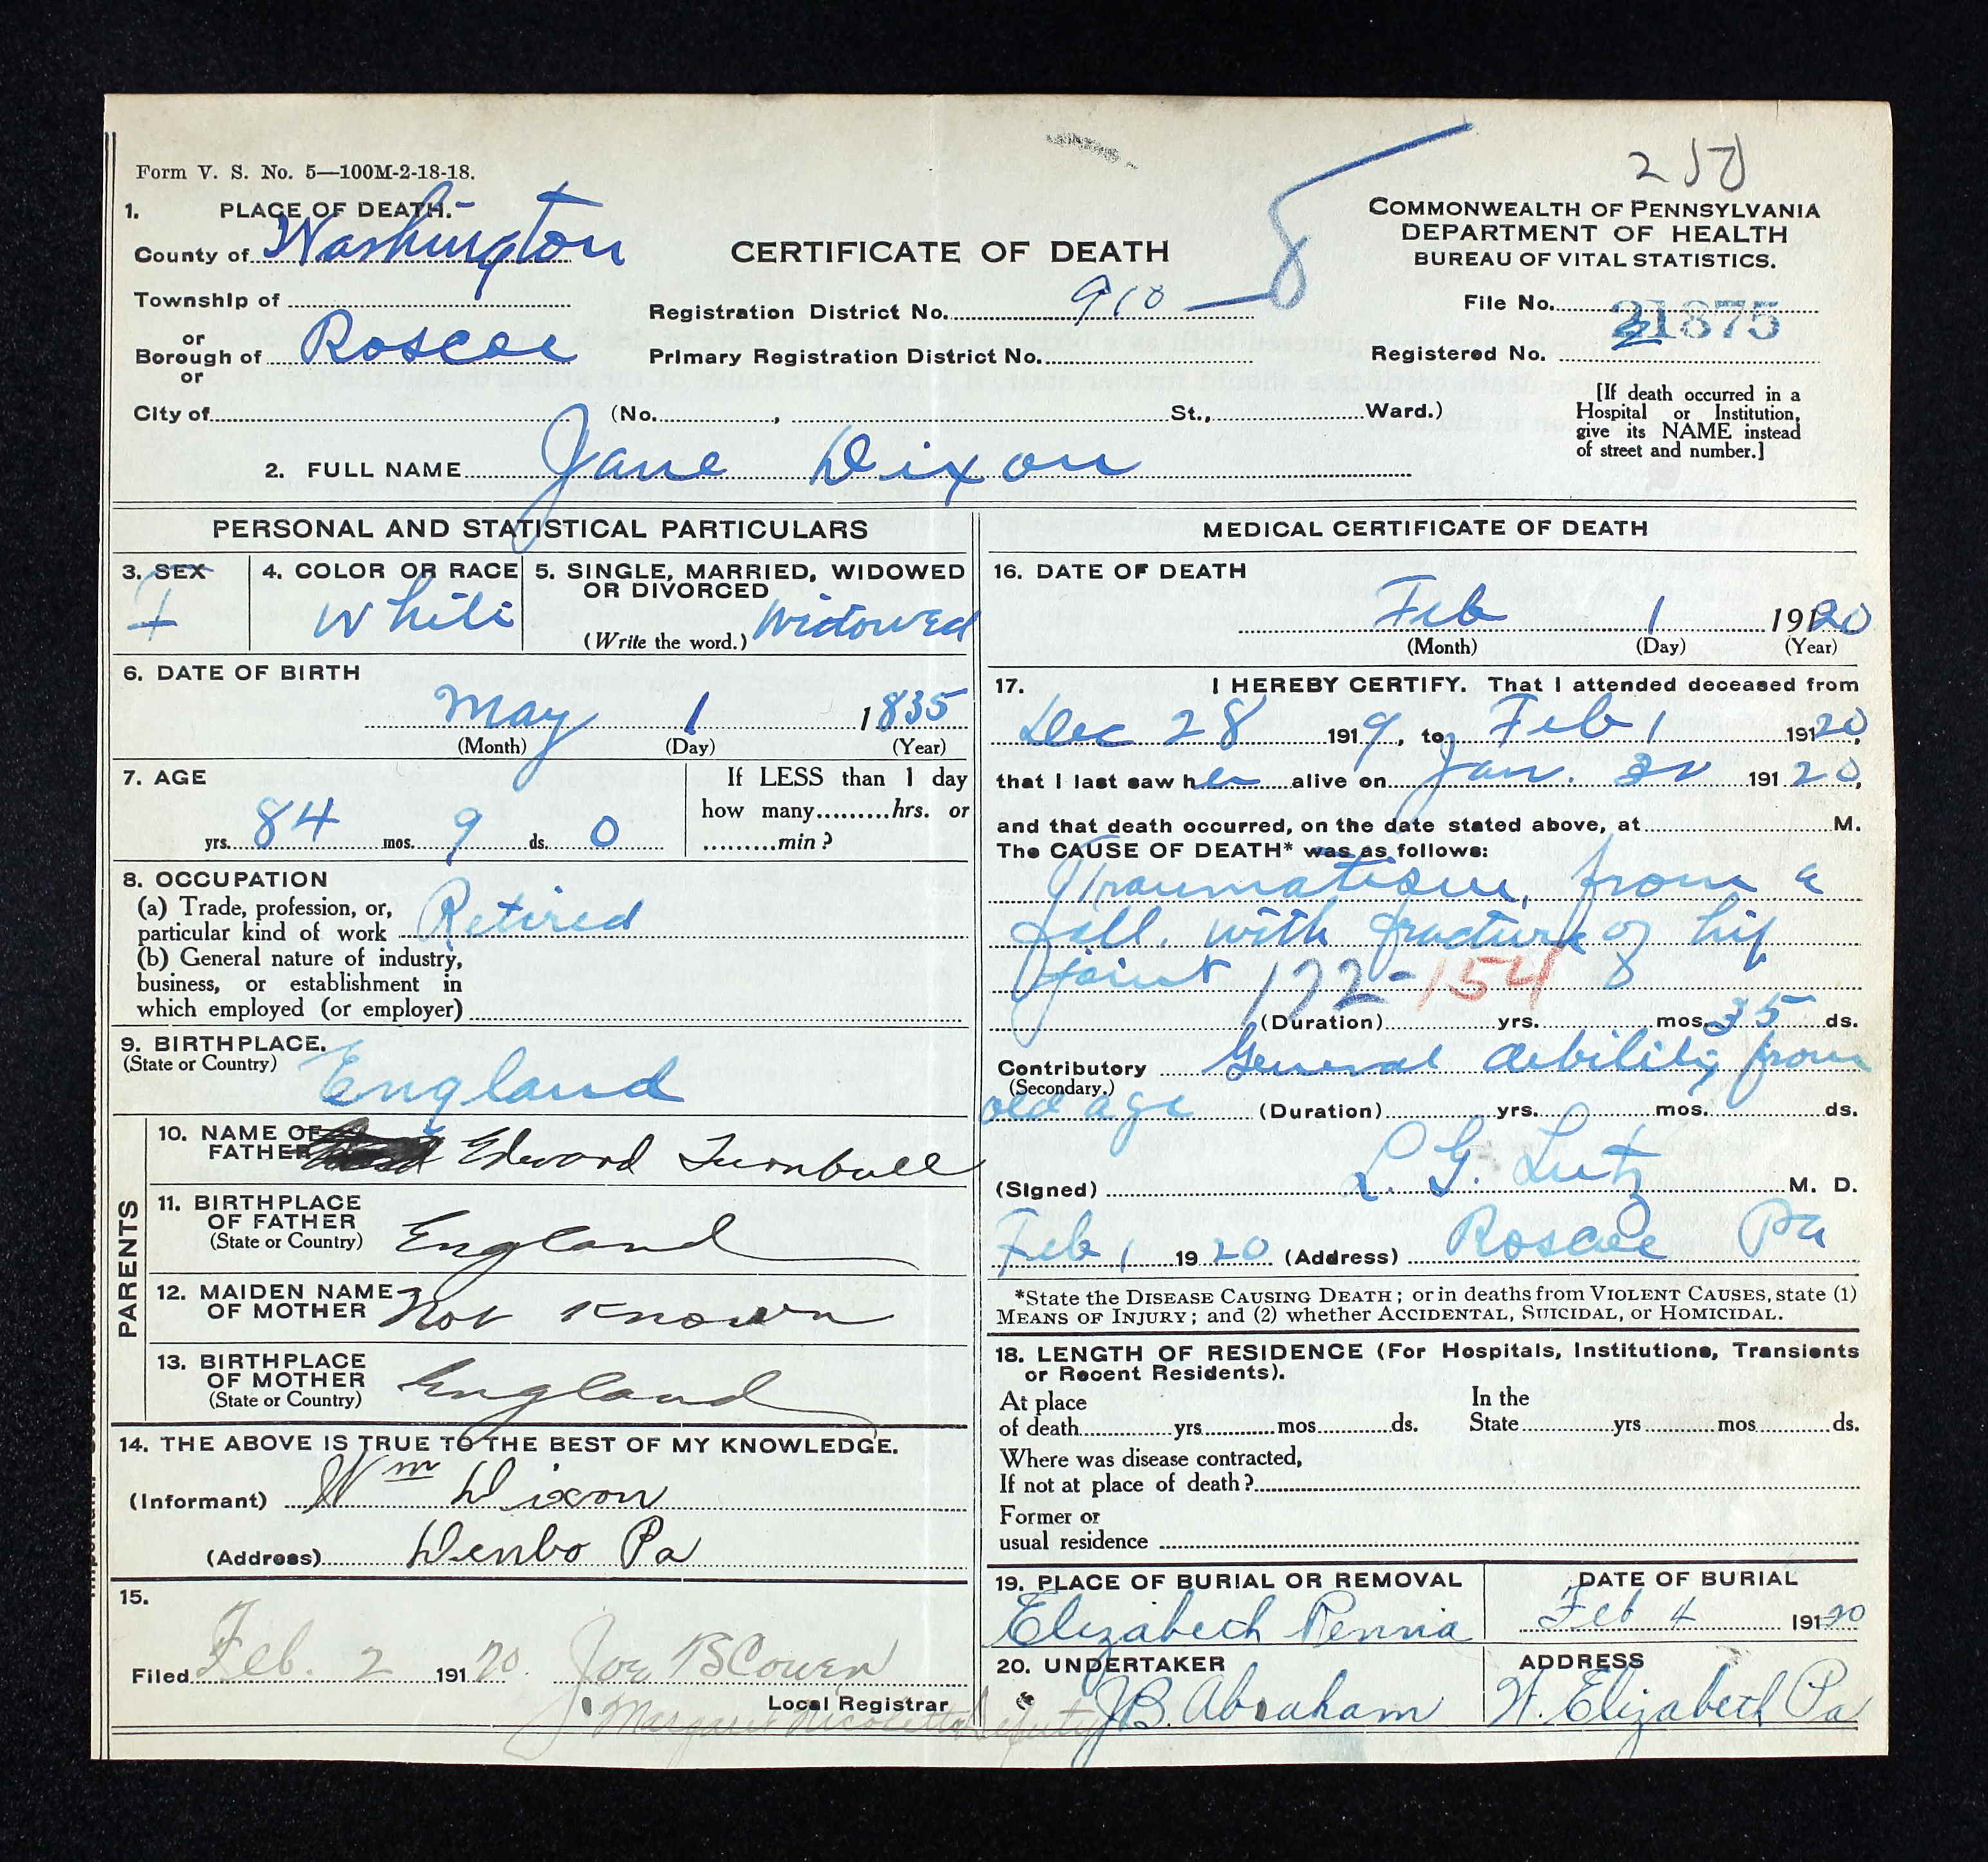 Form V. S. No. 5—100M-2-18-18.
218
1. PLACE OF DEATH.
County of Washington
CERTIFICATE OF DEATH
COMMONWEALTH OF PENNSYLVANIA
DEPARTMENT OF HEALTH
BUREAU OF VITAL STATISTICS.
Township of
Registration District No. 910
8
File No. 21875
or
Borough of Roscoe
or
Primary Registration District No.
Registered No.
City of (No. , St., Ward.)
[If death occurred in a
Hospital or Institution,
give its NAME instead
of street and number.]
2. FULL NAME Jane Dixon
PERSONAL AND STATISTICAL PARTICULARS
3. SEX
F
4. COLOR OR RACE
White
5. SINGLE, MARRIED, WIDOWED
OR DIVORCED
(Write the word.) Widowed
6. DATE OF BIRTH
May 1 1835
(Month) (Day) (Year)
7. AGE
yrs. 84 mos. 9 ds. 0
If LESS than 1 day
how many.........hrs. or
.........min?
8. OCCUPATION
(a) Trade, profession, or,
particular kind of work Retired
(b) General nature of industry,
business, or establishment in
which employed (or employer)
9. BIRTHPLACE.
(State or Country) England
PARENTS
10. NAME OF
FATHER Edward Turnbull
11. BIRTHPLACE
OF FATHER
(State or Country) England
12. MAIDEN NAME
OF MOTHER Not Known
13. BIRTHPLACE
OF MOTHER
(State or Country) England
14. THE ABOVE IS TRUE TO THE BEST OF MY KNOWLEDGE.
(Informant) Wm Dixon
(Address) Denbo Pa
15.
Filed Feb. 2 191 20. Joe B Cowen
Local Registrar
Margaret Nicoletta Deputy
MEDICAL CERTIFICATE OF DEATH
16. DATE OF DEATH
Feb 1 1920
(Month) (Day) (Year)
17. I HEREBY CERTIFY. That I attended deceased from
Dec 28 1919, to Feb 1 191 20,
that I last saw her alive on Jan. 30 191 20,
and that death occurred, on the date stated above, at M.
The CAUSE OF DEATH* was as follows:
Traumatism, from a
fall. with fracture of hip
joint 172-154 8
(Duration) yrs. mos. 35 ds.
Contributory General debility from
(Secondary.)
old age (Duration) yrs. mos. ds.
(Signed) L. G. Lutz M. D.
Feb 1 19 20 (Address) Roscoe Pa
*State the DISEASE CAUSING DEATH; or in deaths from VIOLENT CAUSES, state (1)
MEANS OF INJURY; and (2) whether ACCIDENTAL, SUICIDAL, or HOMICIDAL.
18. LENGTH OF RESIDENCE (For Hospitals, Institutions, Transients
or Recent Residents).
At place
of death yrs. mos. ds.
In the
State yrs. mos. ds.
Where was disease contracted,
If not at place of death?
Former or
usual residence
19. PLACE OF BURIAL OR REMOVAL
Elizabeth Penna
DATE OF BURIAL
Feb 4 191 20
20. UNDERTAKER
J. B. Abraham
ADDRESS
W. Elizabeth Pa